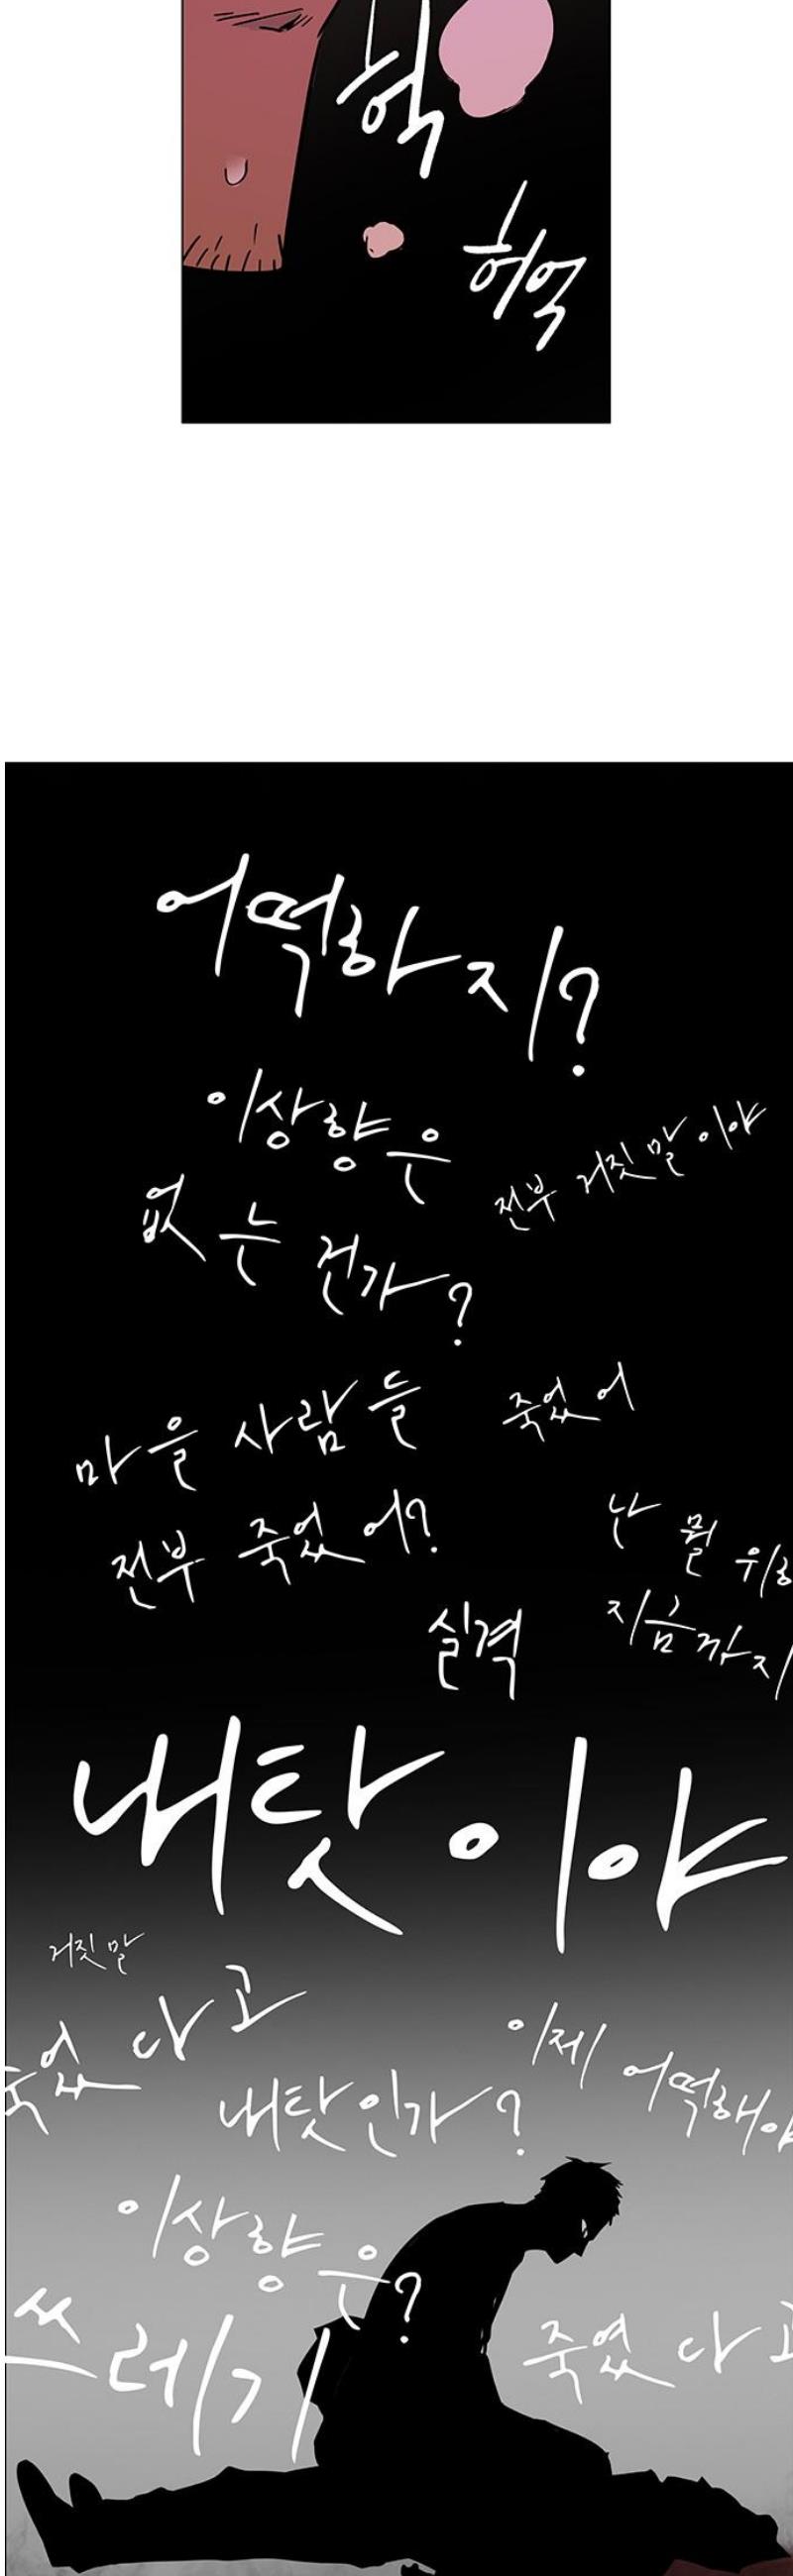 헉
허억
어떡하지?
이상향은
없는 건가?
전부 거짓말이야
마을 사람들
전부 죽었어?
죽었어
난 뭘 위해
지금까지
실격
내탓이야
거짓말
죽었다고
내탓인가?
이제 어떡해야
이상향은?
쓰레기
죽였다고